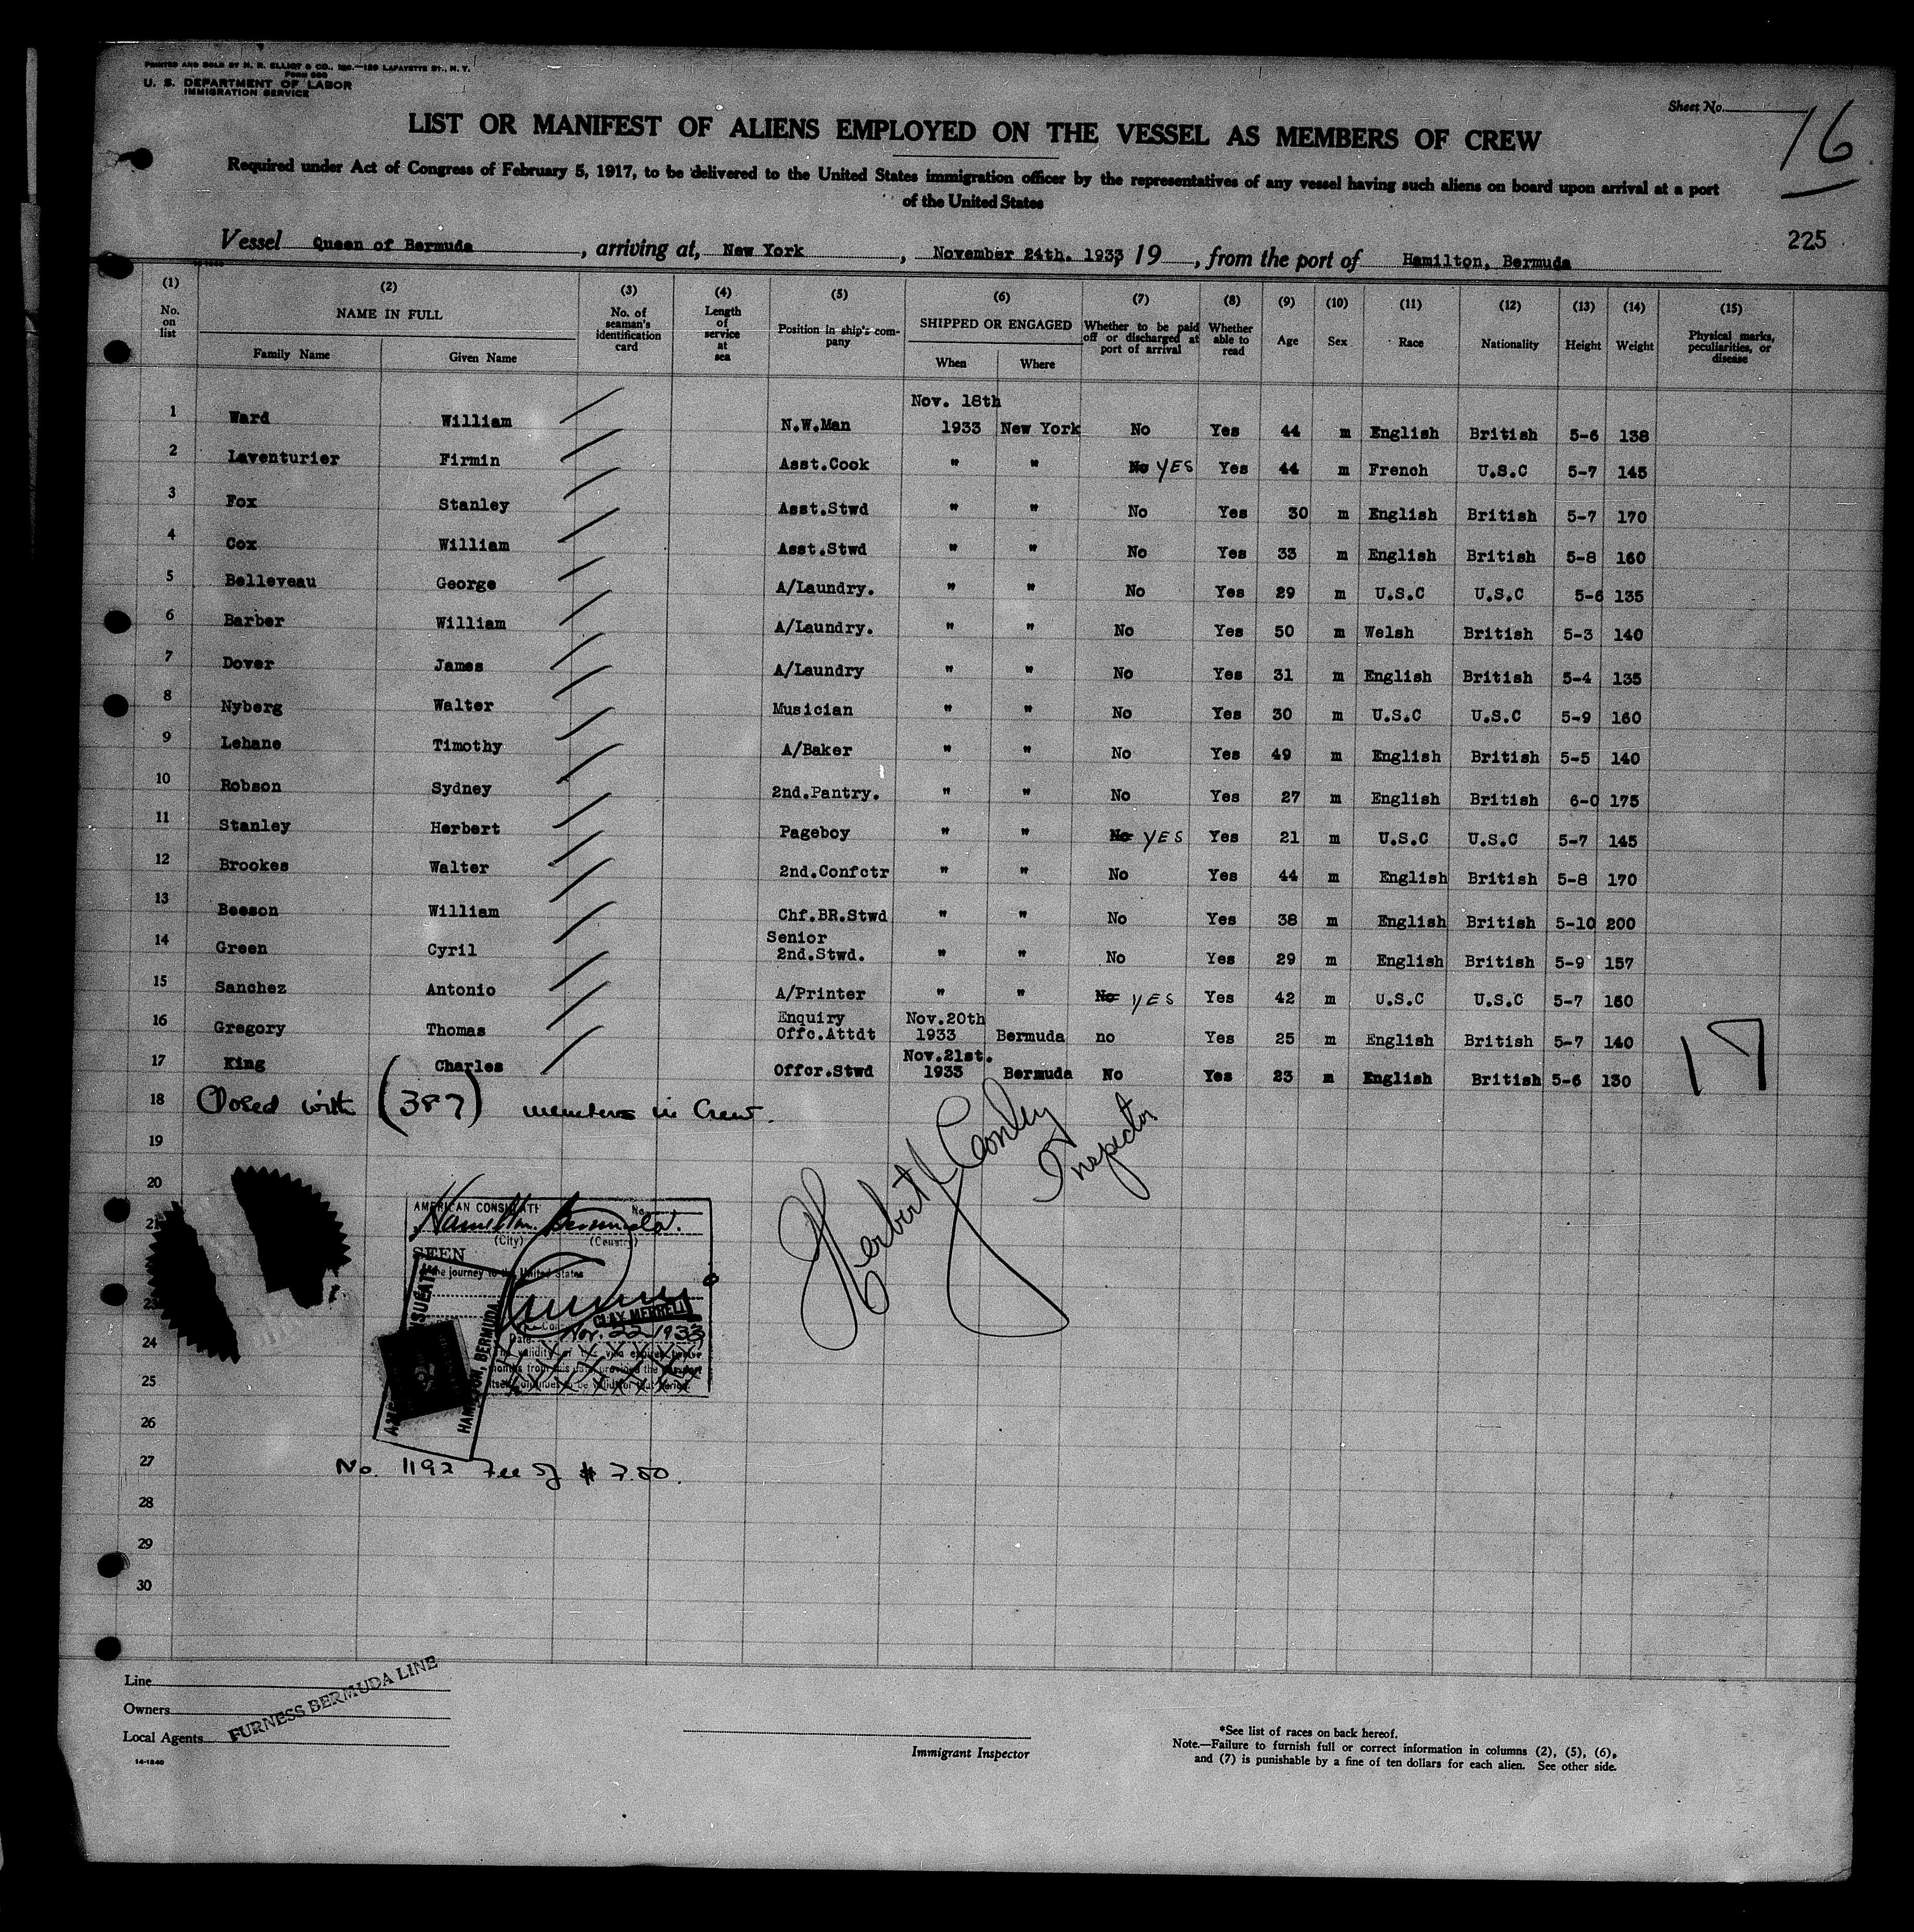 PRINTED AND SOLD BY N. R. ELLIOT & CO., INC.—129 LAFAYETTE ST., N. Y.
Form 680
U. S. DEPARTMENT OF LABOR
IMMIGRATION SERVICE
Sheet No.
16
LIST OR MANIFEST OF ALIENS EMPLOYED ON THE VESSEL AS MEMBERS OF CREW
Required under Act of Congress of February 5, 1917, to be delivered to the United States immigration officer by the representatives of any vessel having such aliens on board upon arrival at a port
of the United States
225
Vessel Queen of Bermuda, arriving at, New York, November 24th. 1933, 19, from the port of Hamilton, Bermuda
(1) (2) (3) (4) (5) (6) (7) (8) (9) (10) (11) (12) (13) (14) (15)
No. on list NAME IN FULL Family Name Given Name No. of seaman's identification card Length of service at sea Position in ship's company SHIPPED OR ENGAGED When Where Whether to be paid off or discharged at port of arrival Whether able to read Age Sex Race Nationality Height Weight Physical marks, peculiarities, or disease
Nov. 18th
1 Ward William N.W.Man 1933 New York No Yes 44 m English British 5-6 138
2 Laventurier Firmin Asst.Cook " " No YES Yes 44 m French U.S.C 5-7 145
3 Fox Stanley Asst.Stwd " " No Yes 30 m English British 5-7 170
4 Cox William Asst.Stwd " " No Yes 33 m English British 5-8 160
5 Belleveau George A/Laundry. " " No Yes 29 m U.S.C U.S.C 5-6 135
6 Barber William A/Laundry. " " No Yes 50 m Welsh British 5-3 140
7 Dover James A/Laundry " " No Yes 31 m English British 5-4 135
8 Nyberg Walter Musician " " No Yes 30 m U.S.C U.S.C 5-9 160
9 Lehane Timothy A/Baker " " No Yes 49 m English British 5-5 140
10 Robson Sydney 2nd.Pantry. " " No Yes 27 m English British 6-0 175
11 Stanley Herbert Pageboy " " No YES Yes 21 m U.S.C U.S.C 5-7 145
12 Brookes Walter 2nd.Confctr " " No Yes 44 m English British 5-8 170
13 Beeson William Chf.BR.Stwd " " No Yes 38 m English British 5-10 200
Senior
14 Green Cyril 2nd.Stwd. " " No Yes 29 m English British 5-9 157
15 Sanchez Antonio A/Printer " " No YES Yes 42 m U.S.C U.S.C 5-7 160
Enquiry Nov.20th
16 Gregory Thomas Offc.Attdt 1933 Bermuda no Yes 25 m English British 5-7 140
Nov.21st.
17 King Charles Offcr.Stwd 1933 Bermuda No Yes 23 m English British 5-6 130
17
18 Closed with (387) members in Crew.
19
20
21
23
24
25
26
27
28
29
30
Herbert J Conley
Inspector
AMERICAN CONSULATE No.
Hamilton, Bermuda.
(City) (Country)
SEEN
journey to the United States
CLAY MERRELL
Date Nov. 22 1933
HAMILTON, BERMUDA
No. 1192 Fee of $ 7.50.
Line
Owners
Local Agents
FURNESS BERMUDA LINE
14-1240
Immigrant Inspector
*See list of races on back hereof.
Note.—Failure to furnish full or correct information in columns (2), (5), (6),
and (7) is punishable by a fine of ten dollars for each alien. See other side.